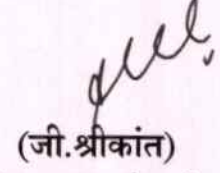 (जी.श्रीकांत)